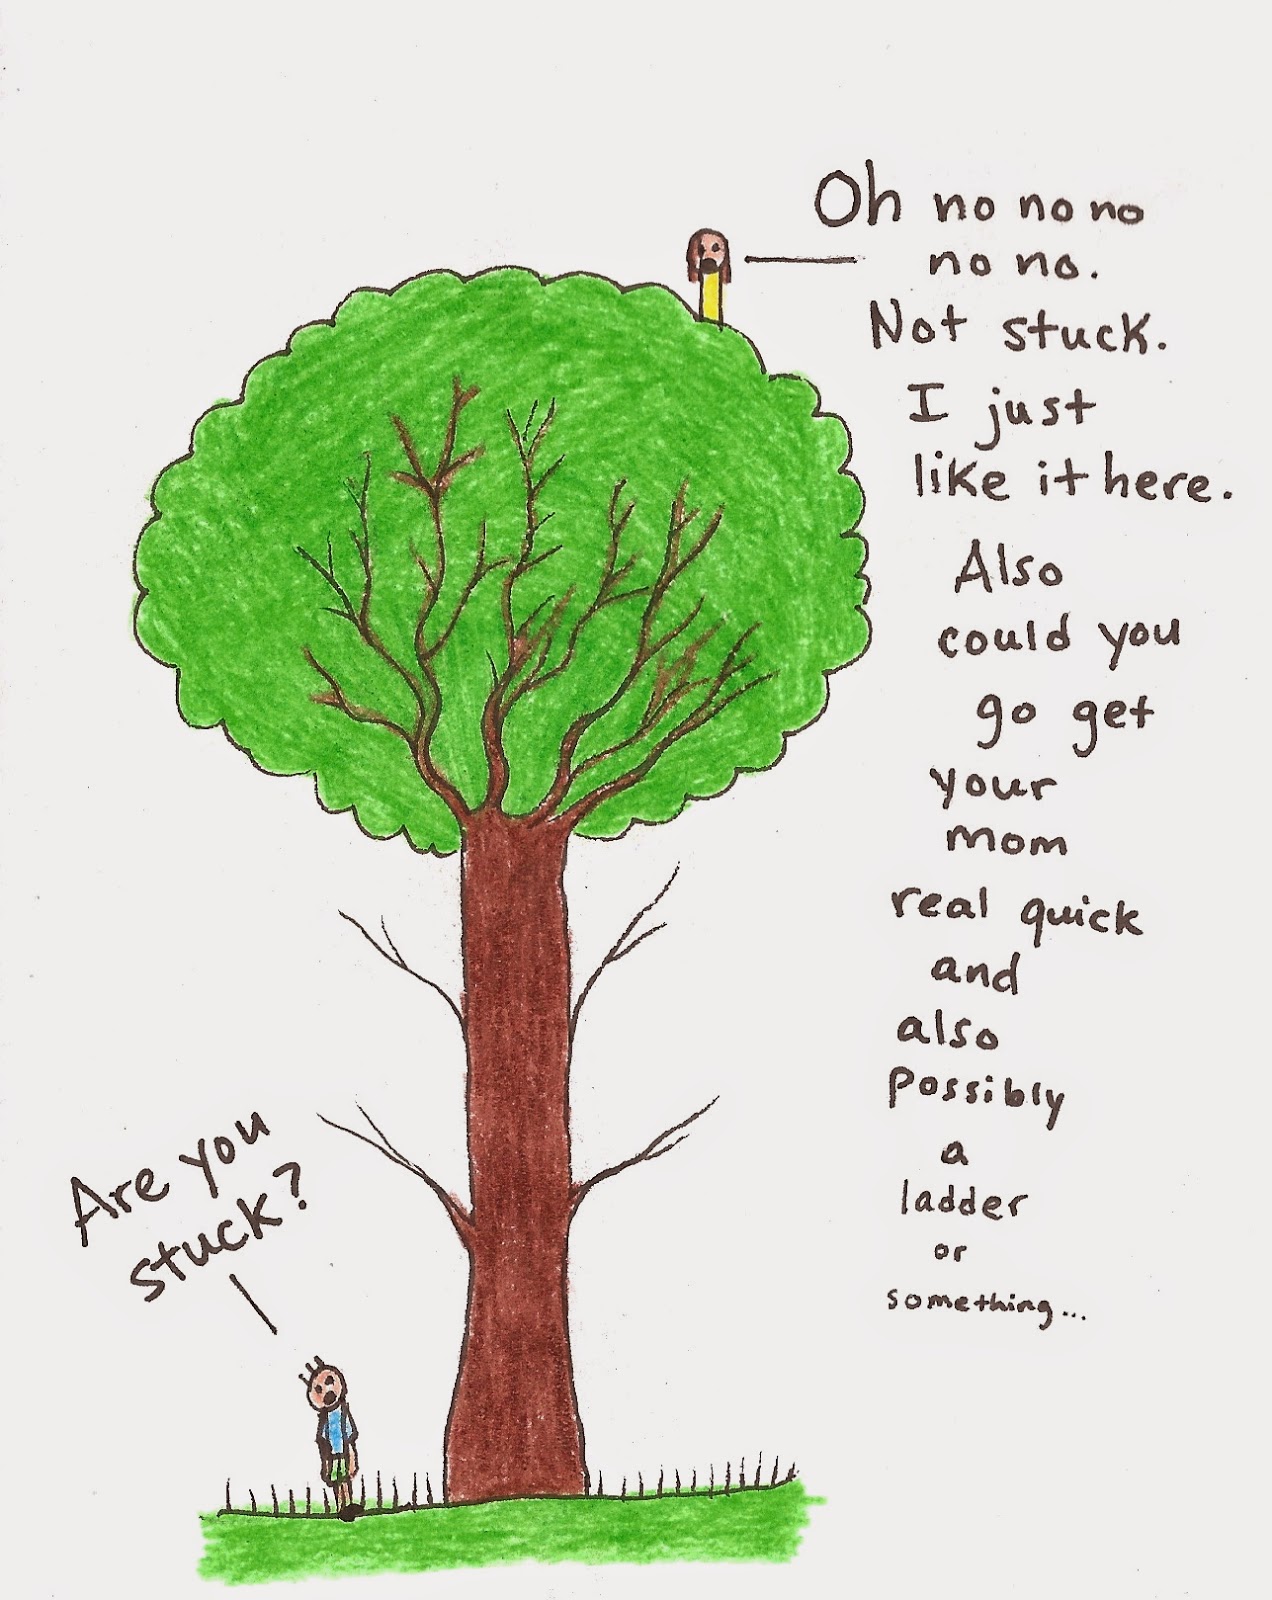 Oh no no no
no no.
Not stuck.
I just
like it here.
Also
could you
go get
your
mom
real quick
and
also
possibly
a
ladder
or
something...
Are you
stuck?